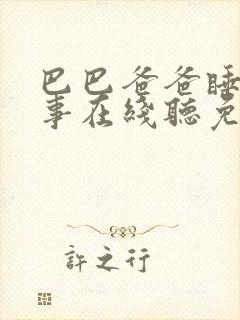 巴巴爸爸睡
事在綫聽免
許之行